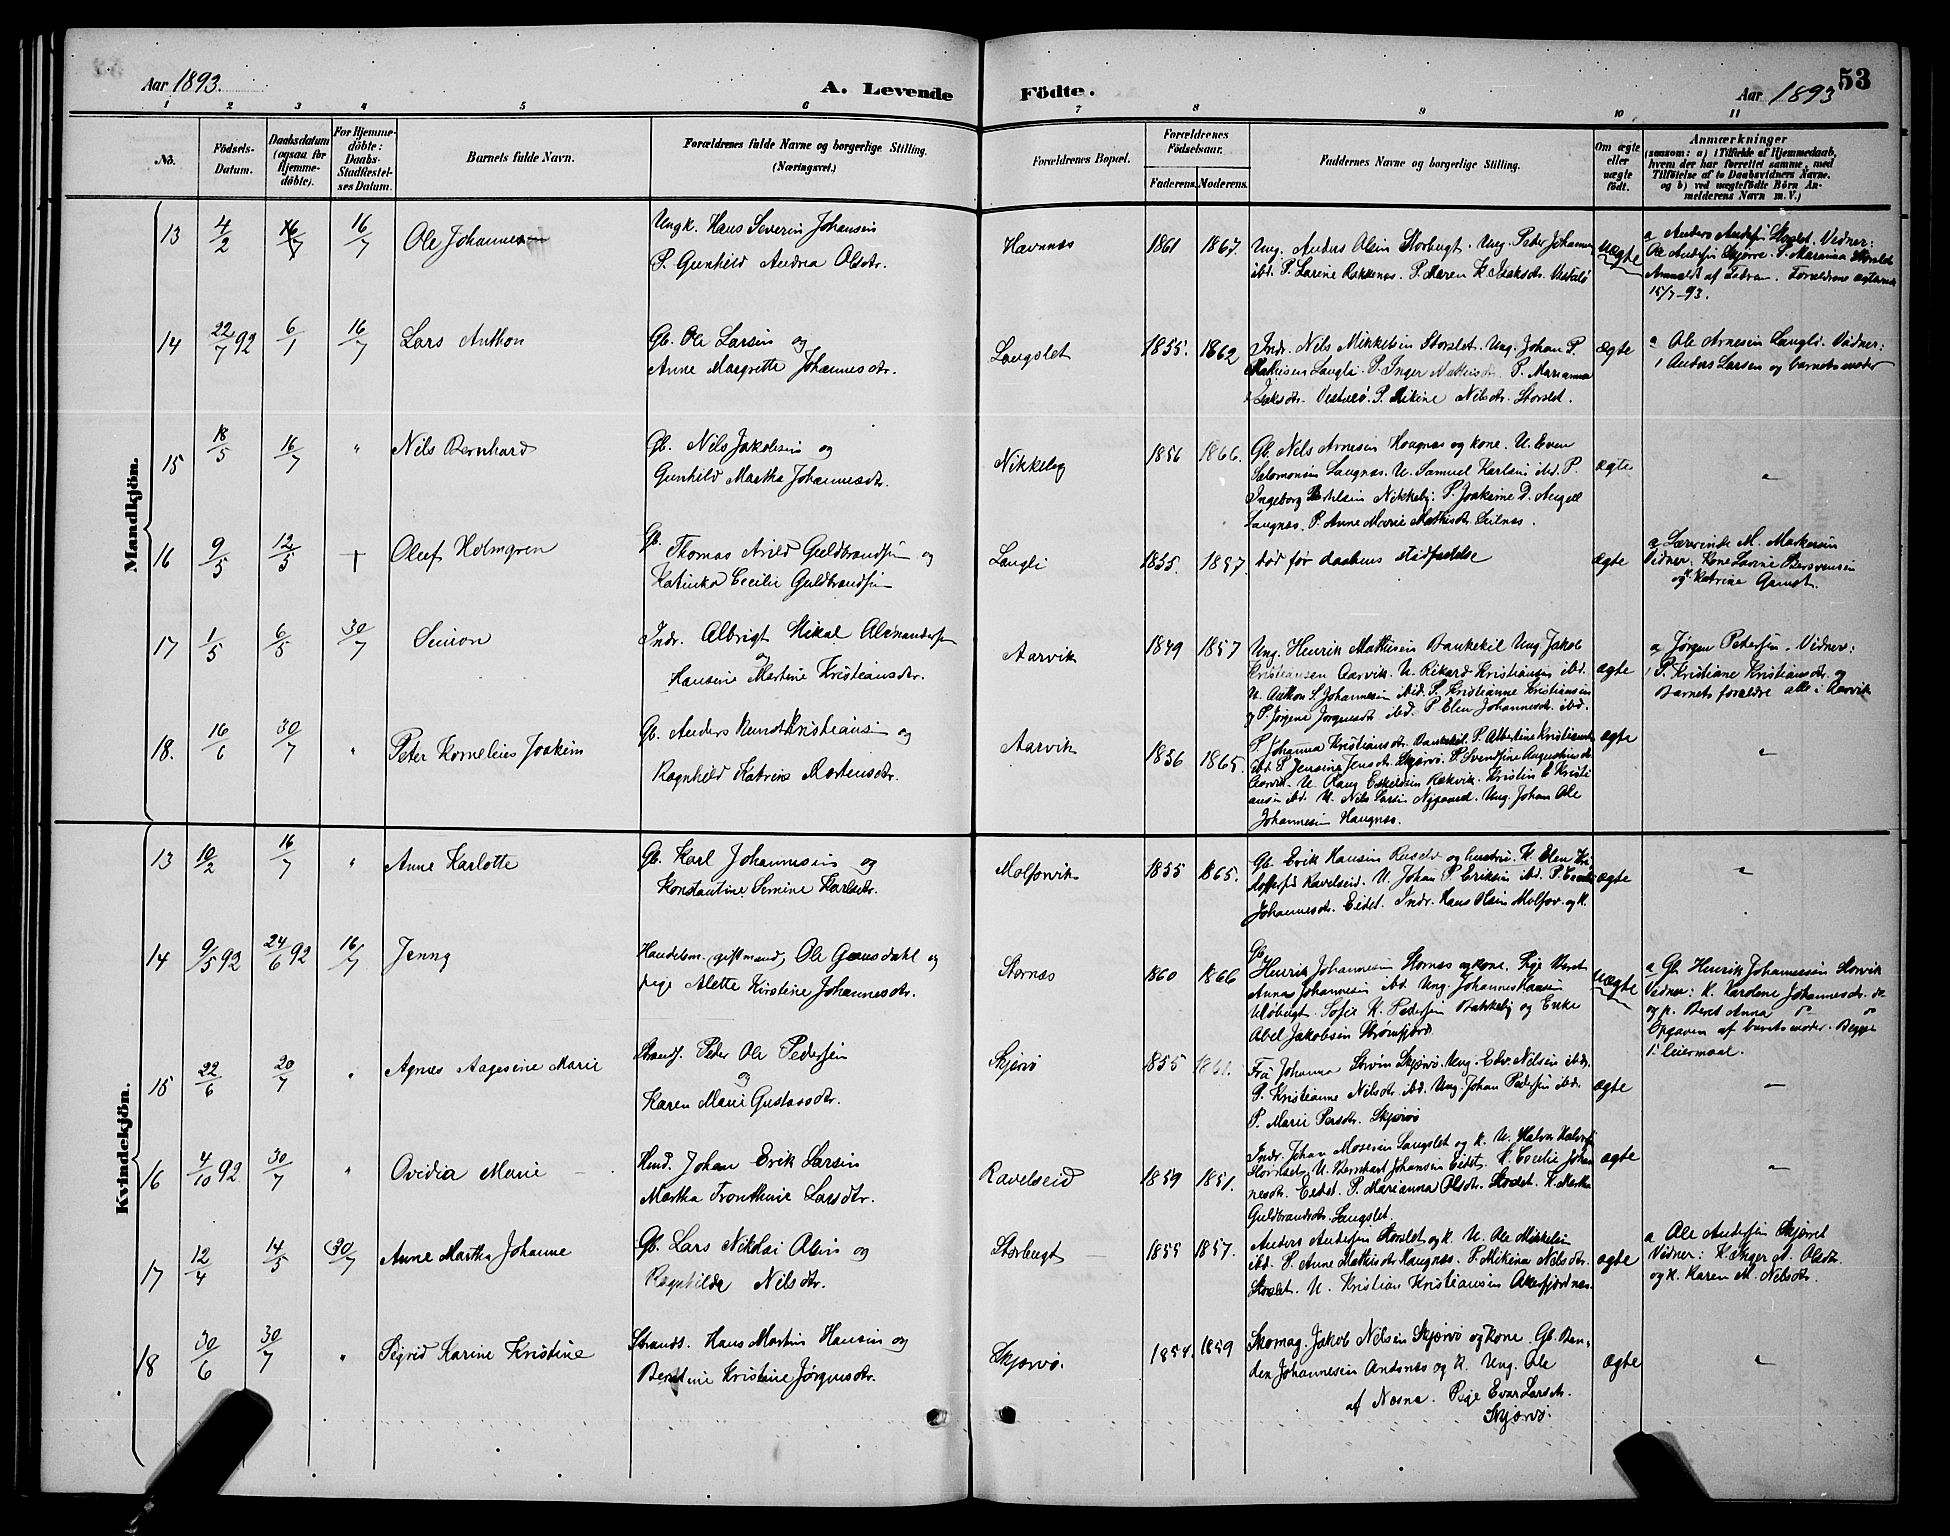 53
Aar 1893.
A. Levende Födte.
Aar 1893
1 2 3 4 5 6 7 8 9 10 11
No.
Födsels-
Datum.
Daabsdatum
(ogsaa for
Hjemme-
döbte).
For Hjemme-
döbte:
Daabs-
Stadfæstel-
ses Datum.
Barnets fulde Navn.
Forældrenes fulde Navne og borgerlige Stilling.
(Næringsvei.)
Forældrenes Bopæl.
Forældrenes
Födselsaar.
Faderens. Moderens.
Faddernes Navne og borgerlige Stilling.
Om ægte
eller
uægte
födt.
Anmærkninger
(saasom: a) i Tilfælde af Hjemmedaab,
hvem der har forrettet samme, med
Tilföielse af to Daabsvidners Navne,
og b) ved uægtefödte Börn An-
melderens Navn m. V.)
Mandkjön.
13 4/2 16/7 16/7 Ole Johannes
Ungk. Hans Severin Johansen
P. Gunhild Andrea Olsdtr.
Havnnæs 1861 1867.
Ung. Anders Olsen Storbugt. Ung. Peder Johannes
ibd. P. Larine Rakkenæs. P. Maren K. Isaksdtr. Vestelø
uægte
a Anders Andersen Storslet. Vidner:
Ole Andersen Skjørve. P. Marianna Storslet
Anmeldt af Fadren. Forældrene ægteviede
15/7-93.
14 22/7 92 6/1 16/7 Lars Anthon
Gb. Ole Larsen og
Anne Margrethe Johannesdtr.
Langslet 1855. 1862
Indr. Nils Mikkelsen Storslet. Ung. Johan P.
Mathisen Langli. P. Inger Mathisdtr. P. Marianna
Isaksdtr. Vestelø. P. Mikine Nilsdtr. Storslet.
ægte
a Ole Arnesen Langli. Vidner:
Anders Larsen og barnets moder
15 18/5 16/7 " Nils Bernhard
Gb. Nils Jakobsen og
Gunhild Martha Johannesdtr.
Nikkeby 1856 1866.
Gb. Nils Arnesen Haugnæs og kone. U. Even
Salomonsen Laugnæs. U. Samuel Karlsen ibd. P.
Ingeborg Nilsen Nikkeby. P. Joakime D. Angell
Laugnæs. P. Anne Marie Mathisdtr. Seilnæs.
ægte "
16 9/5 12/5 + Oluf Holmgren
Gb. Thomas Arild Guldbrandsen og
Katinka Cecilie Guldbrandsen
Langli 1855. 1857. død før daabens stadfæstelse
ægte
a Lærerinde M. Mathesen
Vidner: Kone Lavine Bersvensen
og K. Katrine Gamst.
17 1/5 6/5 30/7 Simon
Indr. Albrigt Mikal Alexandersen
og
Hansine Martine Kristiansdtr.
Aarvik 1849 1857
Ung. Henrik Mathisen Vankekil Ung. Jakob
Kristiansen Aarvik. U. Rikard Kristiansen ibd.
U. Anthon S. Johannesen ibd. P. Kristianne Kristiansen
og P. Jørgine Jørgensdtr ibd. P. Elen Johannesdtr. ibd.
ægte
a Jørgen Petersen. Vidner:
P. Kristiane Kristiansdtr. og
Barnets forældre alle i Aarvik
18. 16/6 30/7 " Peter Kornelius Joakim
Gb. Anders Kunst Kristiansen og
Ragnhild Katrine Mortensdtr.
Aarvik 1856 1865.
P. Johanna Kristiansdtr. Vankekil. P. Albertine Kristiansdtr
ibd. P. Jensine Jensdtr. Skjærvø. P. Svendsine Augustinusdtr
Aarvik. U. Rakvik. Kristin E. Kristi
ansen ibd. U. Nils Larsen Nygaard. Ung. Johan Ole
Johannesen Haugnæs.
ægte "
Kvindekjön.
13 10/2 16/7 " Anne Karlotte
Gb. Karl Johannesen og
Konstantine Semine Karlsdtr.
Molfonvik 1855 1865.
Gb. Erik Hansen og hustru. K. Elen Kri
stoffersd Ravelseid. U. Johan P. Eriksen ibd. P. Cecilie
Johannesdtr. Eidet. Indr. Hans Olsen Molfor. og K.
ægte "
14 9/5 92 24/6 92 16/7 Jenny
Handelsm. (gift mand) Ole Gamsdahl og
pige Alette Kirstine Johannesdtr.
Stornæs 1860 1866
Gb.
Henrik Johannesen Stornæs og kone. Pige Beret
Anna Johannesen ibd. Ung. Johannes Hansen
Uløbugt. Sofie K. Pedersen Bakkeby og Enke
Abel Jakobsen Strømfjord
uægte
a Gb. Henrik Johannesen Storvik
Vidner: K. Karolene Johannesdtr. do
og p. Beret Anna do
Opgaven af barnets moder. Begge
1' leiermaal.
15 22/6 20/7 " Agnæs Aagesine Marie
Strands. Peder Ole Pedersen
og
Karen Marie Gustavsdtr.
Skjervø 1855 1861.
Fru Johanna Skjervø. Ung. Edv. Nilsen ibd.
P. Kristianne Nilsdtr. ibd. Ung. Johan Pedersen ibd.
P. Marie Persdtr. Skjervø
ægte "
16 4/10 92 30/7 " Ovidia Marie
Hmd. Johan Erik Larsen
Martha Fronthine Larsdtr.
Ravelseid 1859 1851.
Indr. Johan Mosesen Langslet og K. U. Halvor Halvorsen
Storslet. U. Bernhart Johansen Eidet. P. Cecilie Johan
nesdtr. Eidet. P. Marianna Olsdtr. Storslet. K. Martha
Guldbrandsdtr. Langslet.
ægte "
17 12/4 14/5 30/7 Anne Martha Johanne
Gb. Lars Nikolai Olsen og
Ragnhilda Nilsdtr.
Storbugt 1855 1857.
Anders Andersen Storslet og K. U. Ole Mikkelsen
ibd. P. Anne Mathisdtr Haugnæs. P. Mikina Nilsdtr.
Storslet. U. Kristian Kristiansen Akkerfjordnæs.
ægte
a Ole Andersen Skjervet
Vidner: K. Inger A. Olsdtr.
og K. Karen M. Nilsdtr.
18 30/6 30/7 " Sigrid Karine Kristine
Strands. Hans Martin Hansen og
Berntine Kristine Jørgensdtr.
Skjervø. 1854. 1859
Skomag. Jakob Nilsen Skjervø og kone. Gb. Ben-
den Johannesen Andsnæs og K. Ung. Ole
af Næsna. Pige Evar Larsdtr.
Skjervø.
ægte "